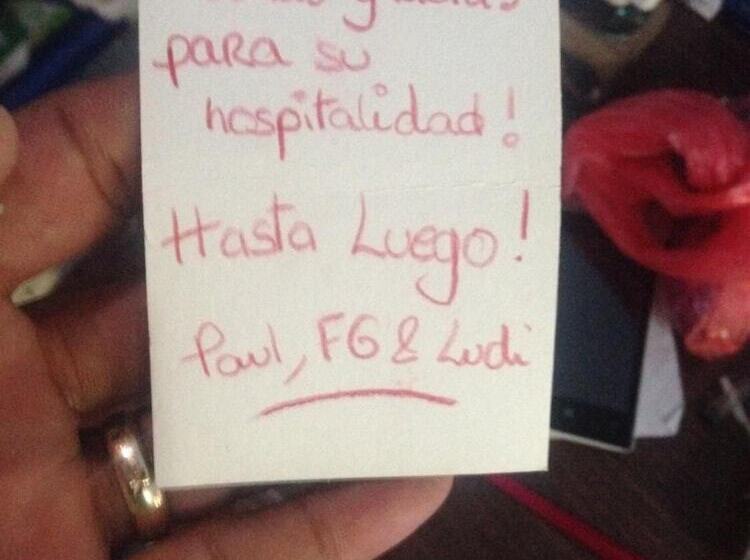 gracias
para su
hospitalidad!
Hasta Luego!
Paul, FG & Ludi